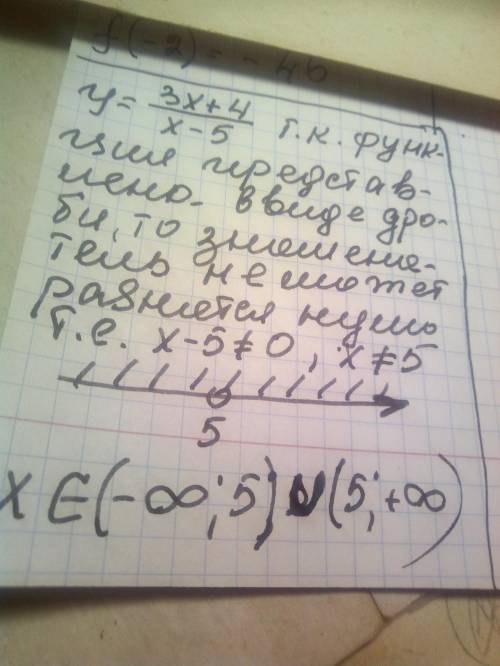 f(-2) = -46
y = (3x+4)/(x-5) т.к. функ-
ция представ-
лено в виде дро-
би, то знамена-
тель не может
равнятся нулю
т.е. x-5≠0, x≠5
5
x∈(-∞;5)∪(5;+∞)